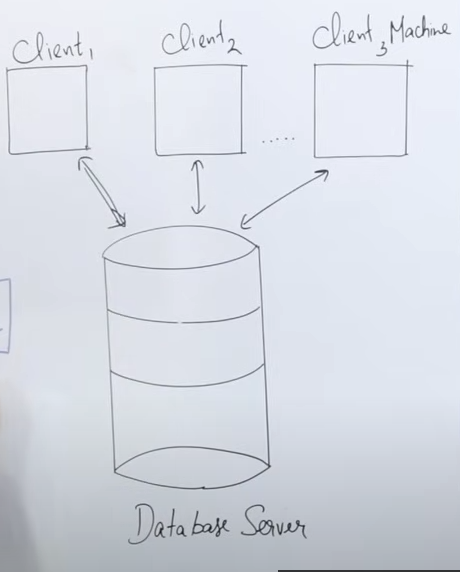 Client1
Client2
Client3 Machine
.....
Database Server